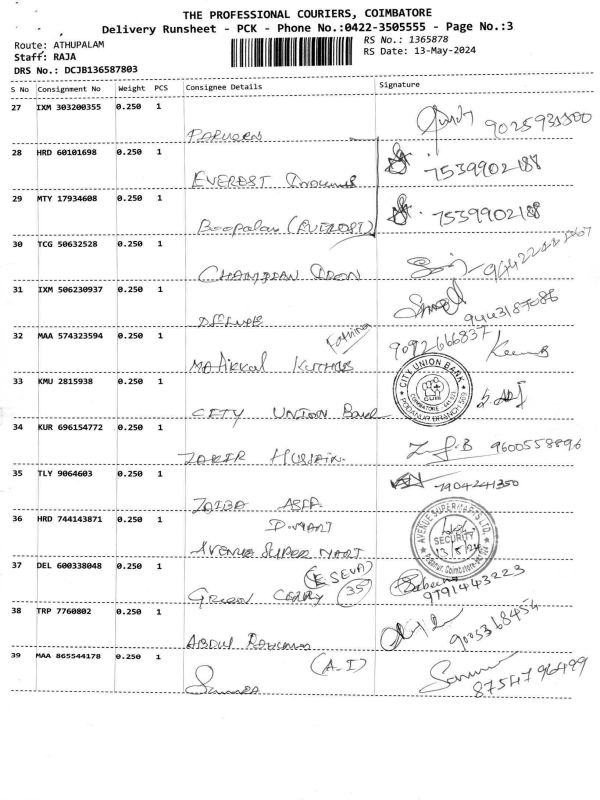 THE PROFESSIONAL COURIERS, COIMBATORE
Delivery Runsheet - PCK - Phone No.:0422-3505555 - Page No.:3
Route: ATHUPALAM
RS No.: 1365878
Staff: RAJA
RS Date: 13-May-2024
DRS No.: DCJB136587803
S No Consignment No Weight PCS Consignee Details Signature
27 IXM 303200355 0.250 1
9025931500
28 HRD 60101698 0.250 1
EVEREST
7539902188
29 MTY 17934608 0.250 1
Boopalan (EVEREST)
7539902188
30 TCG 50632528 0.250 1
31 IXM 506230937 0.250 1
9443187086
32 MAA 574323594 0.250 1
Fathima
9092666837
33 KMU 2815938 0.250 1
CITY UNION Bank
CITY UNION BANK
COIMBATORE
PODANUR BRANCH
34 KUR 696154772 0.250 1
ZAKIR HUSSAIN.
9600558896
35 TLY 9064603 0.250 1
ZAIBA
7904241350
36 HRD 744143871 0.250 1
D.MART
AVENUE SUPER MART
AVENUE SUPERMARTS LTD.
SECURITY
13/5/24
Podanur, Coimbatore
37 DEL 600338048 0.250 1
(ESEVA)
GREEN 35
9791443223
38 TRP 7760802 0.250 1
ABDUL
9005368454
39 MAA 865544178 0.250 1
(A-I)
8754796499